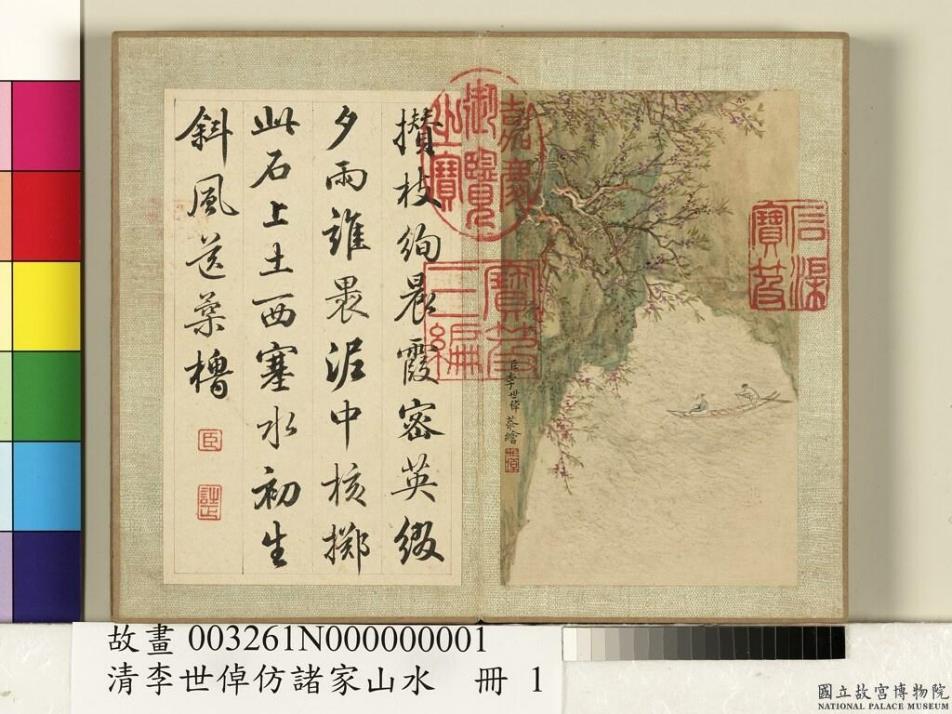 攢枝絢晨霞密英綴
夕雨誰畏泥中核擲
此石上土西塞水初生
斜風送槳櫓
臣
嘉慶御覽之寶
寶笈三編
臣李世倬恭繪
故畫 003261N000000001
清李世倬仿諸家山水 冊 1
國立故宮博物院
NATIONAL PALACE MUSEUM